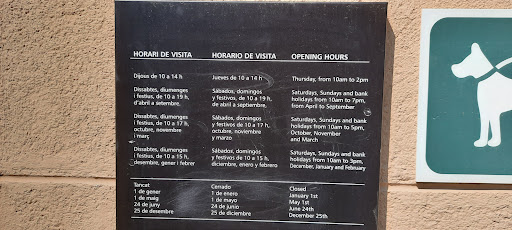 HORARI DE VISITA
Dijous de 10 a 14 h
Dissabtes, diumenges
i festius, de 10 a 19 h,
d'abril a setembre.
Dissabtes, diumenges
i festius, de 10 a 17 h,
octubre, novembre
i març
Dissabtes, diumenges
i festius, de 10 a 15 h,
desembre, gener i febrer
Tancat
1 de gener
1 de maig
24 de juny
25 de desembre
HORARIO DE VISITA
Jueves de 10 a 14 h
Sábados, domingos
y festivos, de 10 a 19 h,
de abril a septiembre,
Sábados, domingos
y festivos de 10 a 17 h,
octubre, noviembre
y marzo
Sábados, domingos
y festivos de 10 a 15 h,
diciembre, enero y febrero
Cerrado
1 de enero
1 de mayo
24 de junio
25 de diciembre
OPENING HOURS
Thursday, from 10am to 2pm
Saturdays, Sundays and bank
holidays from 10am to 7pm,
from April to September
Saturdays, Sundays and bank
holidays from 10am to 5pm,
October, November
and March
Saturdays, Sundays and bank
holidays from 10am to 3pm,
December, January and February
Closed
January 1st
May 1st
June 24th
December 25th